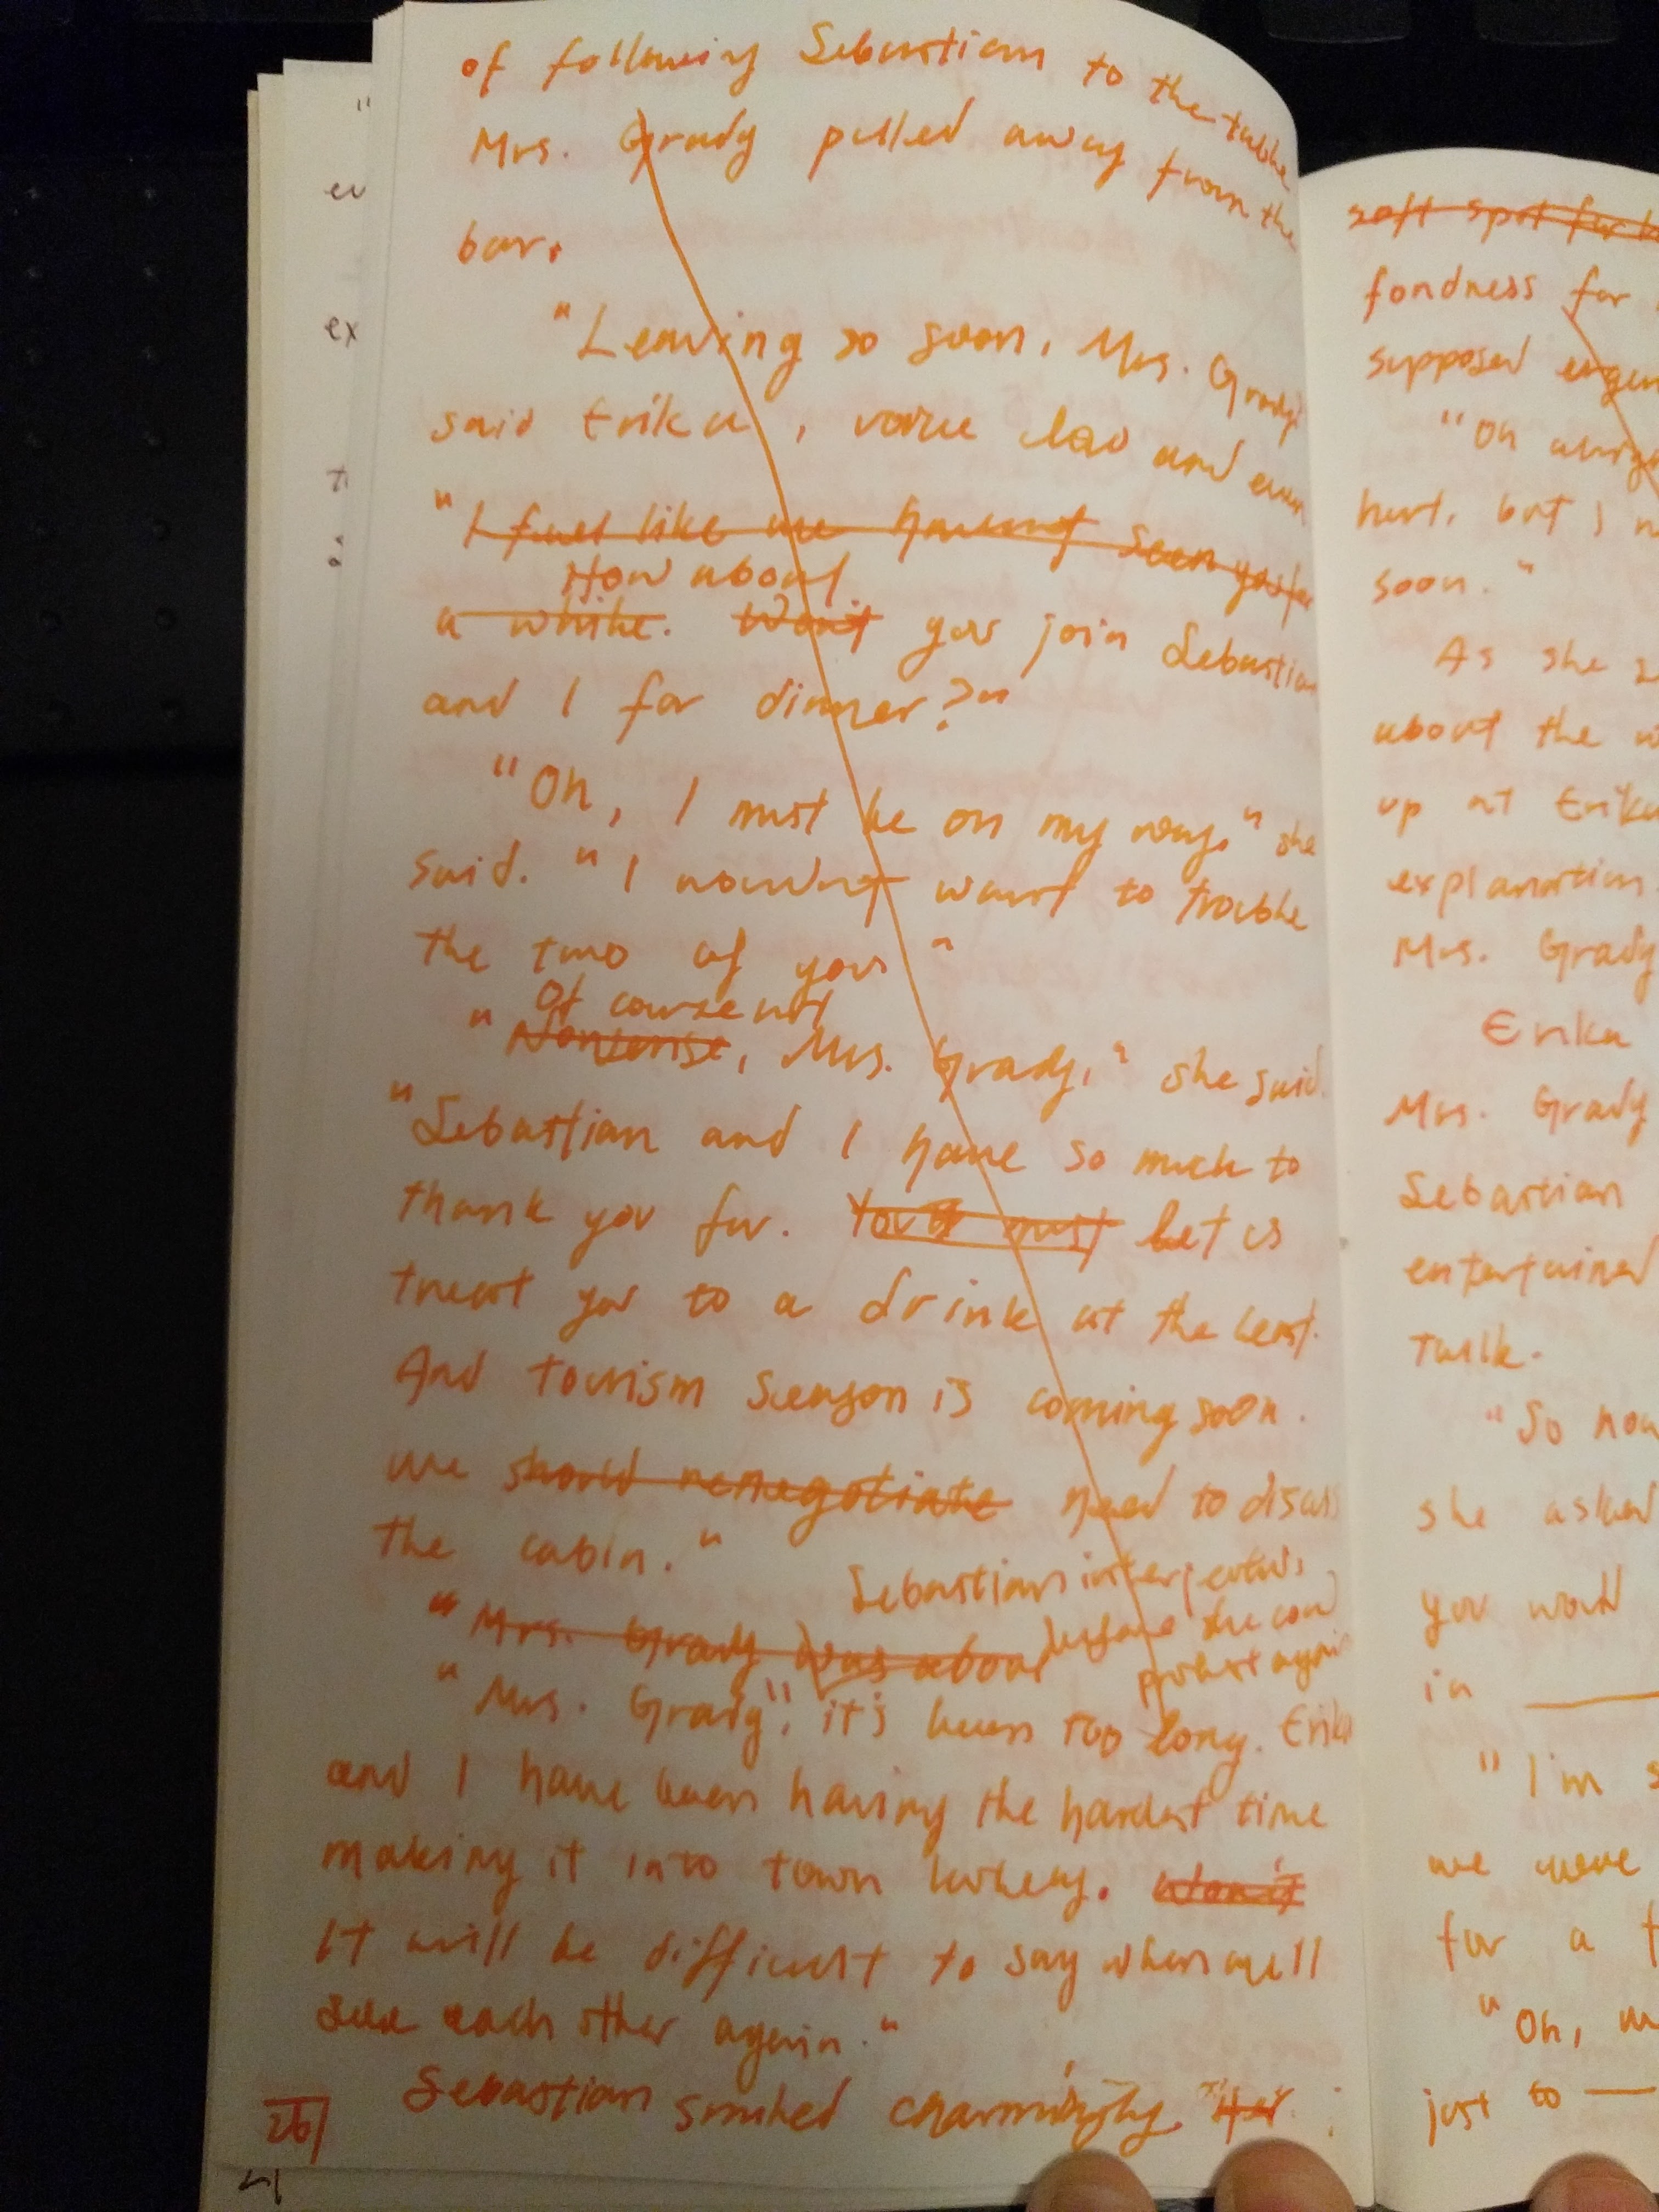 of following Sebastian to the table
Mrs. Grady pulled away from the
bar.
"Leaving so soon, Mrs. Grady?"
said Erika, voice low and even
"I feel like we haven't seen you for
How about
a while. Won't you join Sebastian
and I for dinner?"
"Oh, I must be on my way," she
said. "I wouldn't want to trouble
the two of you"
Of course not
"Nonsense, Mrs. Grady," she said.
"Sebastian and I have so much to
thank you for. must Let us
treat you to a drink at the least.
And tourism season is coming soon.
we should renegotiate need to discuss
the cabin."
Sebastian interjected
"Mrs. Grady was about before she could
protest again
"Mrs. Grady", it's been too long. Erika
and I have been having the hardest time
making it into town lately. Won't
It will be difficult to say when we'll
see each other again."
Sebastian smiled charmingly. Her
26
soft spot for
fondness for
supposed
"Oh
hurt, but I
soon."
As she
about the
up at Erika
explanation.
Mrs. Grady
Erika
Mrs. Grady
Sebastian
entertained
talk.
"So how
she asked
you would
in
"I'm
we were
for a
"Oh,
just to
ex